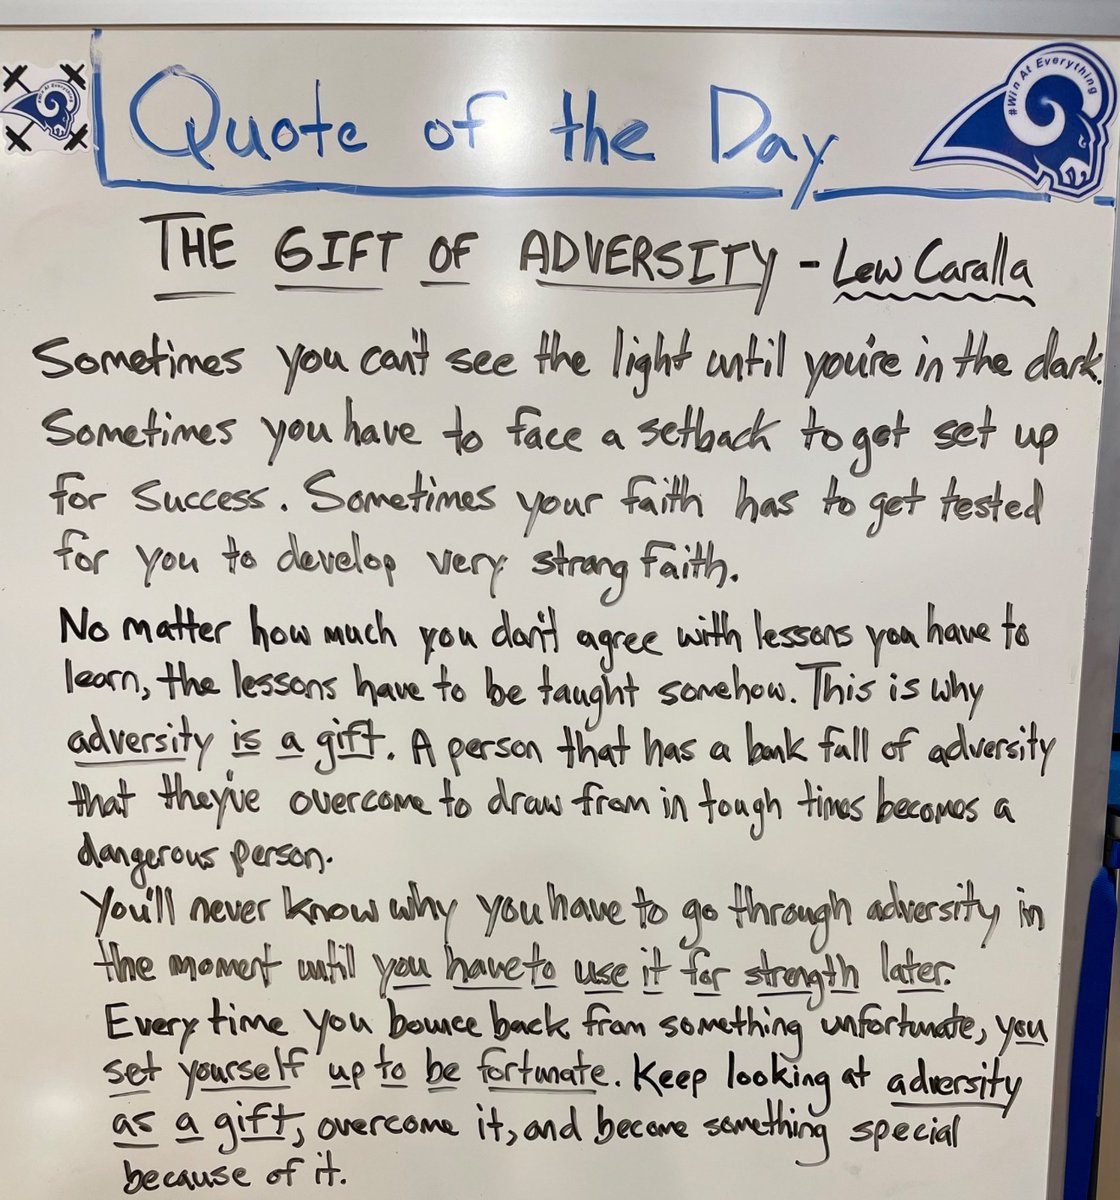 Quote of the Day
#Win At Everything
#Win At Everything
THE GIFT OF ADVERSITY - Lew Caralla
Sometimes you can't see the light until you're in the dark.
Sometimes you have to face a setback to get set up
for success. Sometimes your faith has to get tested
for you to develop very strong faith.
No matter how much you don't agree with lessons you have to
learn, the lessons have to be taught somehow. This is why
adversity is a gift. A person that has a bank full of adversity
that they've overcome to draw from in tough times becomes a
dangerous person.
You'll never know why you have to go through adversity in
the moment until you have to use it for strength later.
Every time you bounce back from something unfortunate, you
set yourself up to be fortunate. Keep looking at adversity
as a gift, overcome it, and become something special
because of it.